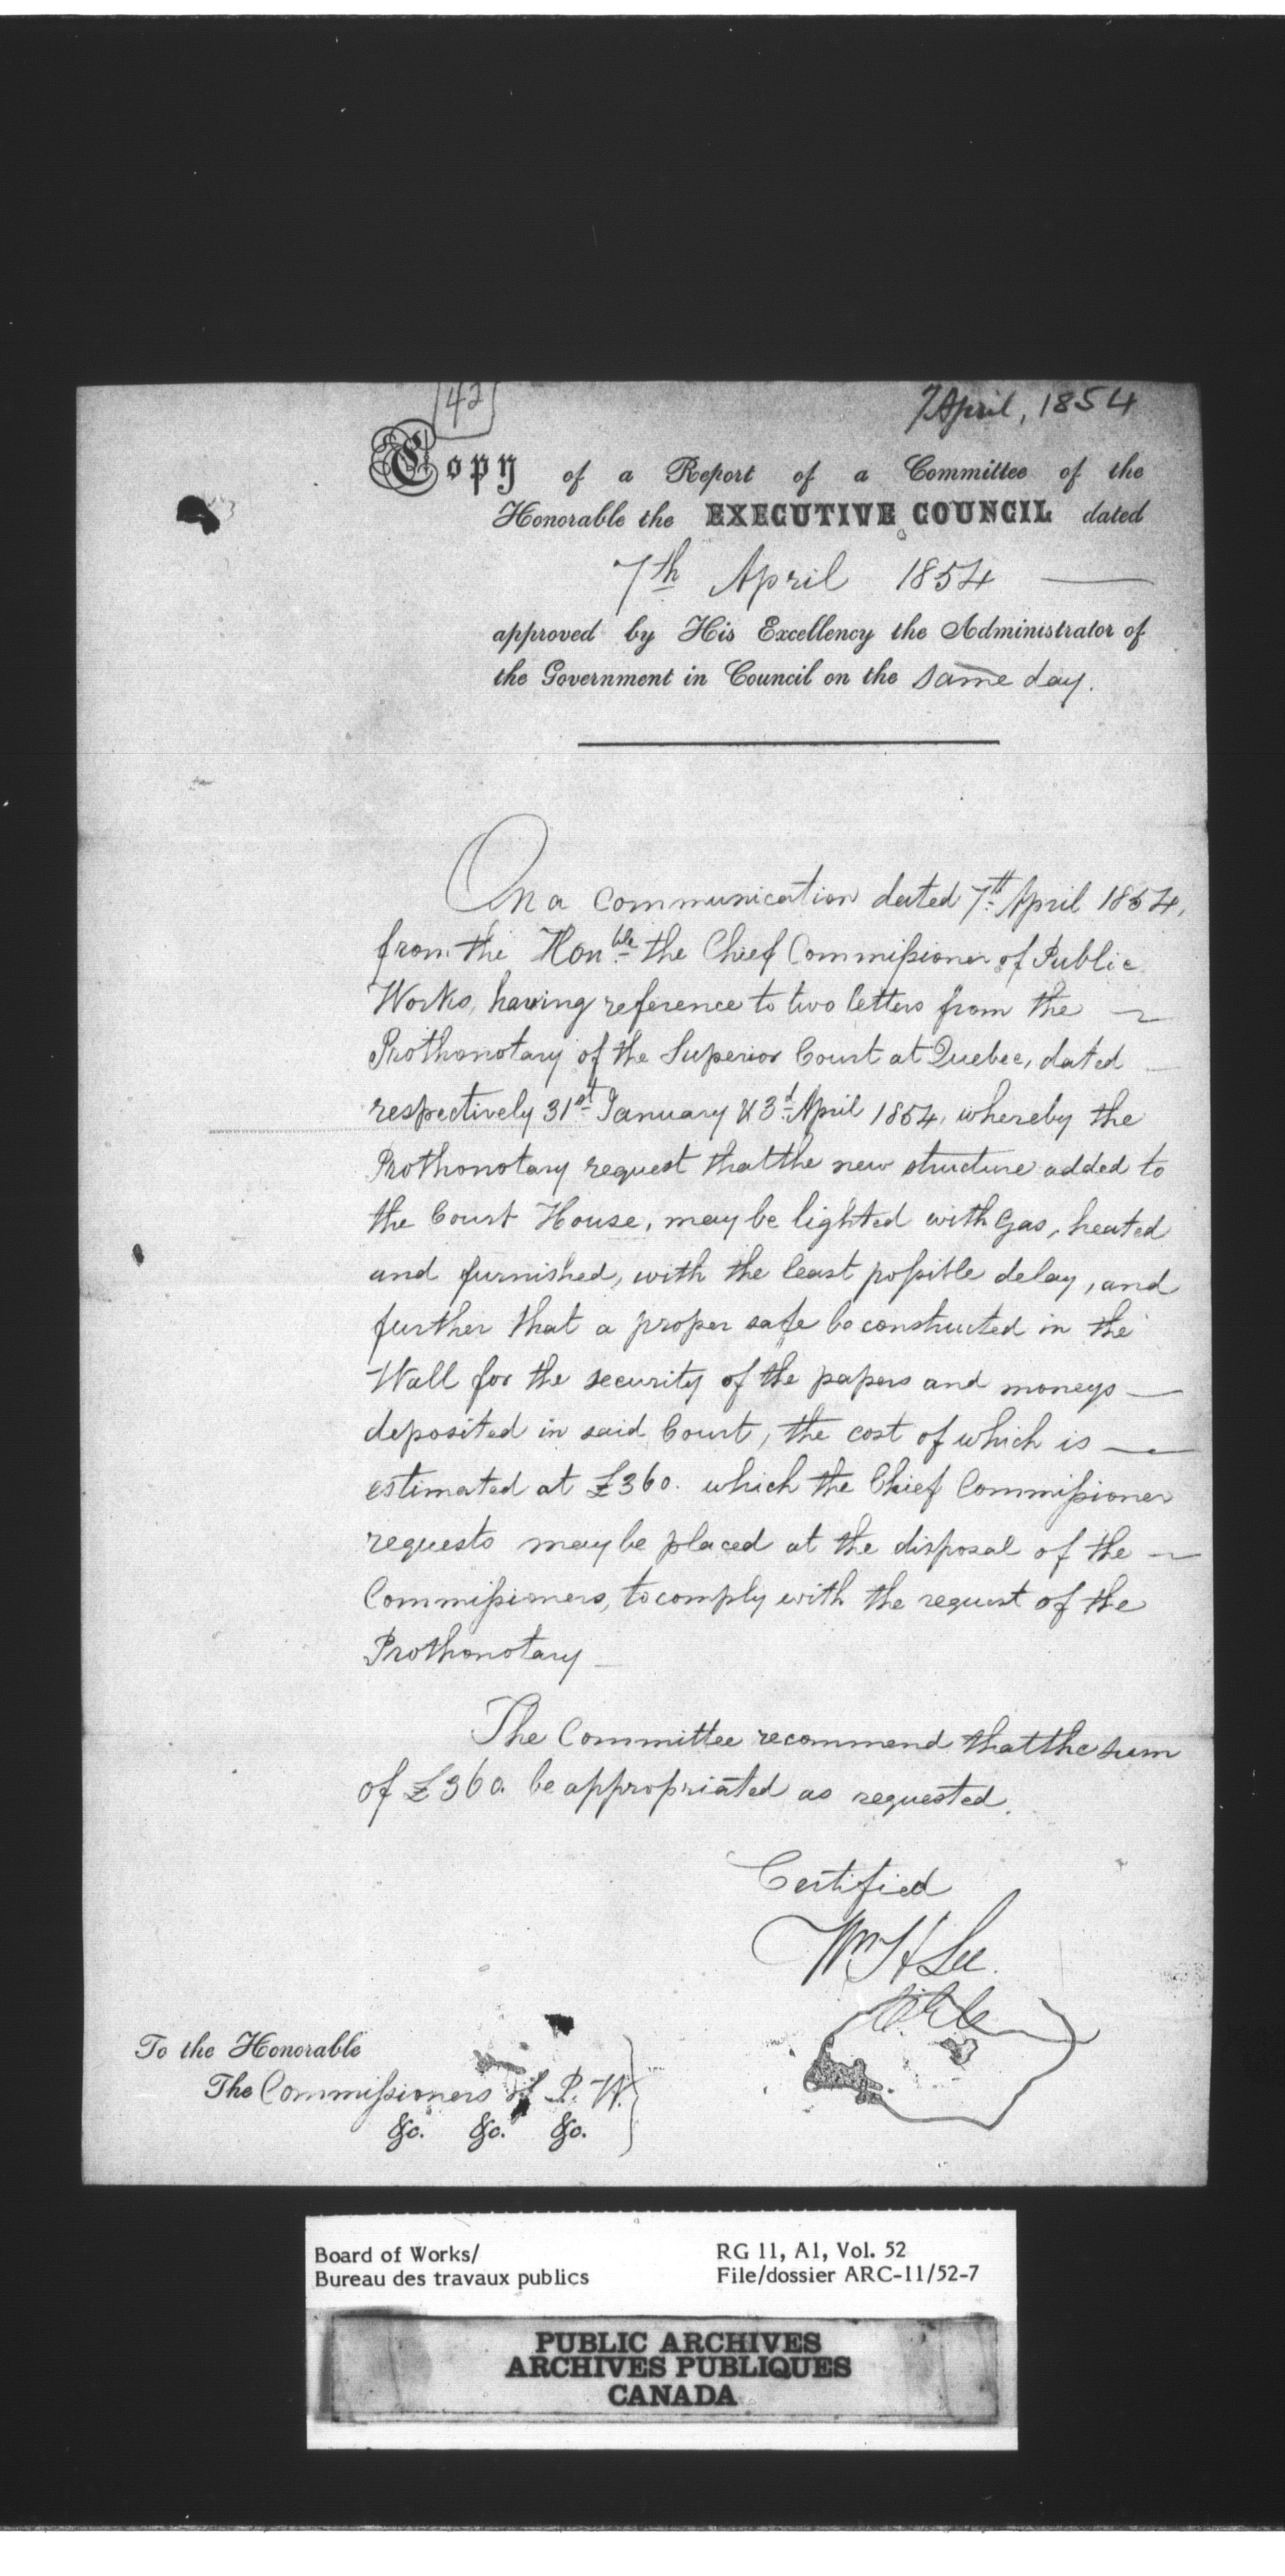 42
7 April, 1854
Copy of a Report of a Committee of the
Honorable the EXECUTIVE COUNCIL dated
7th April 1854
approved by His Excellency the Administrator of
the Government in Council on the same day.
On a communication dated 7th April 1854,
from the Honble the Chief Commissioner of Public
Works, having reference to two letters from the
Prothonotary of the Superior Court at Quebec, dated
respectively 31st January & 3d April 1854, whereby the
Prothonotary request that the new structure added to
the Court House, may be lighted with Gas, heated
and furnished, with the least possible delay, and
further that a proper safe be constructed in the
Wall for the security of the papers and moneys
deposited in said Court, the cost of which is
estimated at £360. which the Chief Commissioner
requests may be placed at the disposal of the
Commissioners, to comply with the request of the
Prothonotary
The Committee recommend that the sum
of £360. be appropriated as requested.
Certified
Wm H Lee.
To the Honorable
The Commissioners of P. W.
&c. &c. &c.
Board of Works/
Bureau des travaux publics
RG 11, A1, Vol. 52
File/dossier ARC-11/52-7
PUBLIC ARCHIVES
ARCHIVES PUBLIQUES
CANADA